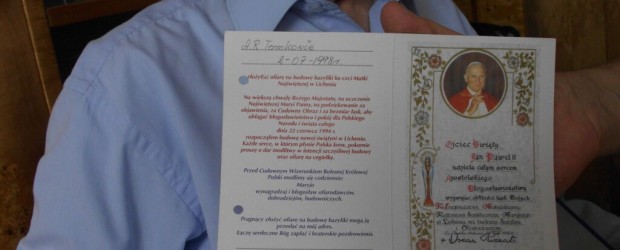 2-07-1998r.
złożył/a ofiarę na budowę bazyliki ku czci Matki
Najświętszej w Licheniu
Na większą chwałę Bożego Majestatu, na uczczenie
Najświętszej Maryi Panny, na podziękowanie za
objawienia, za Cudowny Obraz i za bezmiar łask, aby
obłagać błogosławieństwo i pokój dla Polskiego
Narodu i świata całego
dnia 23 czerwca 1994 r.
rozpocząłem budowę nowej świątyni w Licheniu.
Każde serce, w którym płynie Polska krew, pokornie
proszę o dar modlitwy w intencji szczęśliwej budowy
oraz ofiarę na cegiełkę.
Przed Cudownym Wizerunkiem Bolesnej Królowej
Polski modlimy się codziennie:
Maryjo
wynagradzaj i błogosław ofiarodawców,
dobrodziejów, budowniczych.
Pragnący złożyć ofiarę na budowę bazyliki mogą ją
przesłać na mój adres.
Łączę serdeczne Bóg zapłać i braterskie pozdrowienia
Ojciec Święty
Jan Paweł II
udziela całym sercem
Apostolskiego
Błogosławieństwa